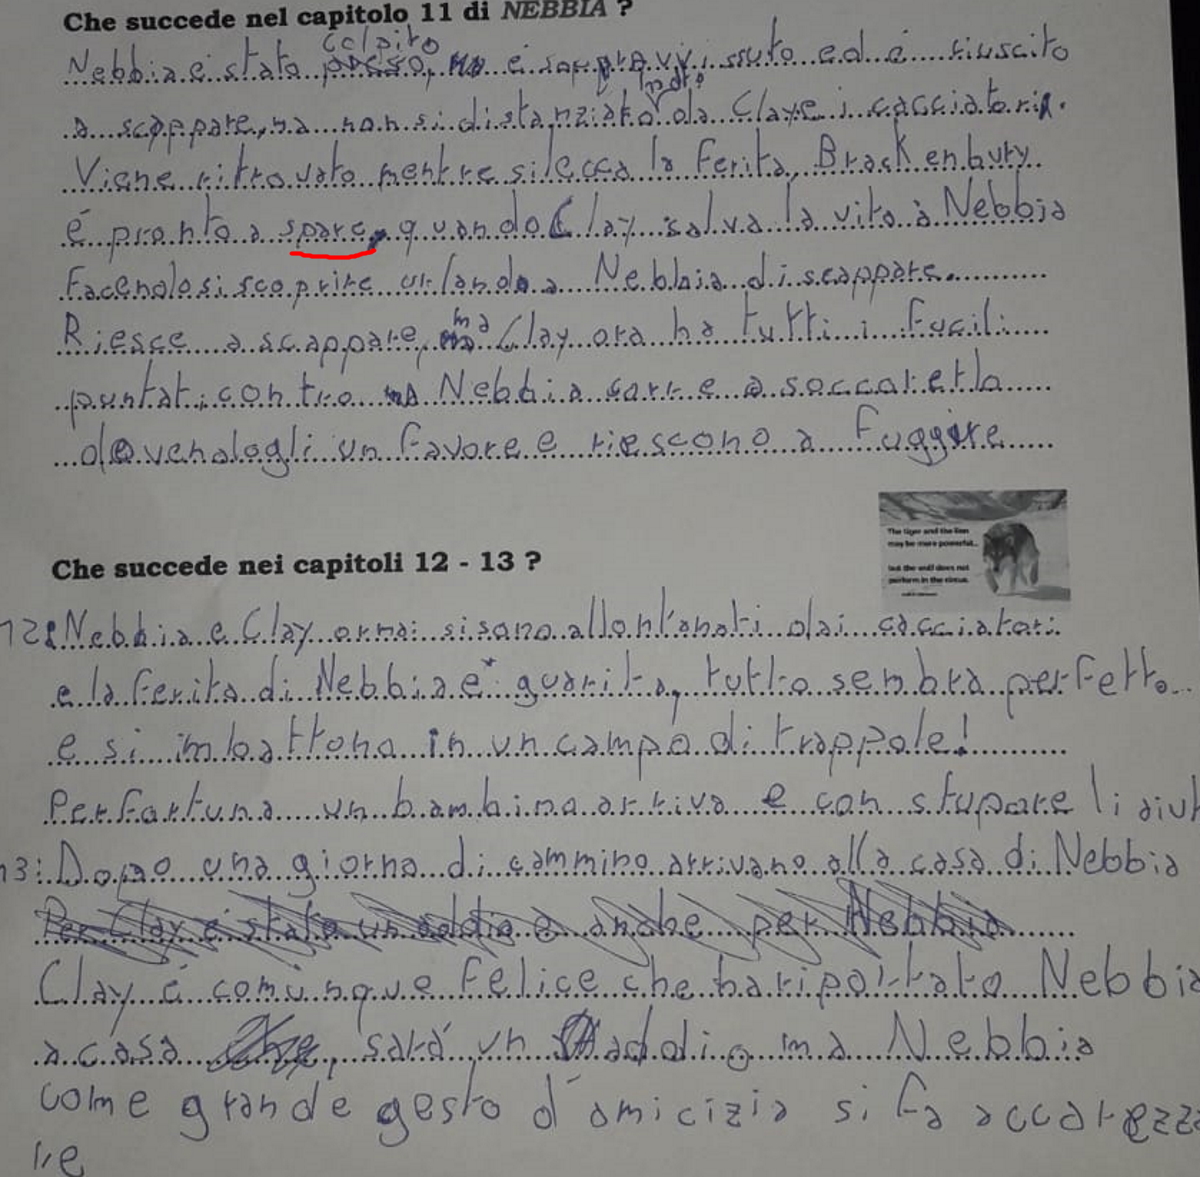 Che succede nel capitolo 11 di NEBBIA ?
colpito
Nebbia è stato preso, ma è sopravvissuto ed è riuscito
molto
a scappare, ma non si è distanziato da Clay e i cacciatori.
Viene ritrovato mentre si lecca la ferita, Brackenbury
è pronto a spare, quando Clay salva la vita à Nebbia
facendosi scoprire urlando a Nebbia di scappare.
Riesce a scappare, ma Clay ora ha tutti i fucili
puntati contro ma Nebbia corre a soccorrerlo
dovendogli un favore e riescono a fuggire
The tiger and the lion
may be more powerful...
but the wolf does not
perform in the circus.
Che succede nei capitoli 12 - 13 ?
12: Nebbia e Clay ormai si sono allontanati dai cacciatori
e la ferita di Nebbia è guarita, tutto sembra perfetto
e si imbattono in un campo di trappole!
Per fortuna un bambino arriva e con stupore li aiut
13: Dopo una giorno di cammino arrivano alla casa di Nebbia
Per Clay è stato un addio e anche per Nebbia
Clay è comunque felice che ha riportato Nebbia
a casa, sarà un addio ma Nebbia
come grande gesto d'amicizia si fa accarezza
re